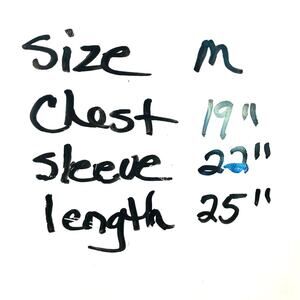 Size M
Chest 19"
sleeve 22"
length 25"